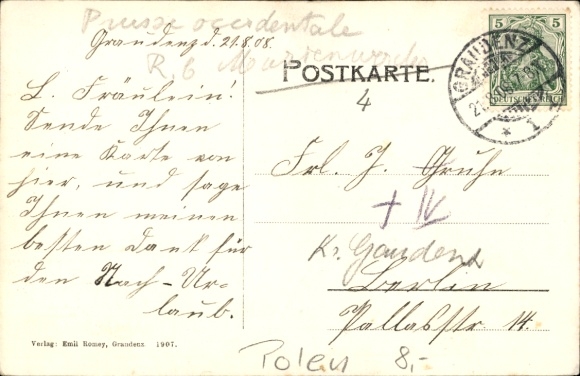 Prusse occidentale
Graudenz d. 21.8.08.
R.B Marienwerder
POSTKARTE.
4
5 5
DEUTSCHES REICH
GRAUDENZ
* 1
L. Fräulein!
Sende Ihnen
eine Karte von
hier, und sage
Ihnen meinen
besten Dank für
den Nach-Ur-
laub.
Frl. J. Gruhn
+ IV
Kr. Gaudenz
Berlin
Pallasstr 14.
Verlag: Emil Romey, Graudenz. 1907.
Polen 8,-